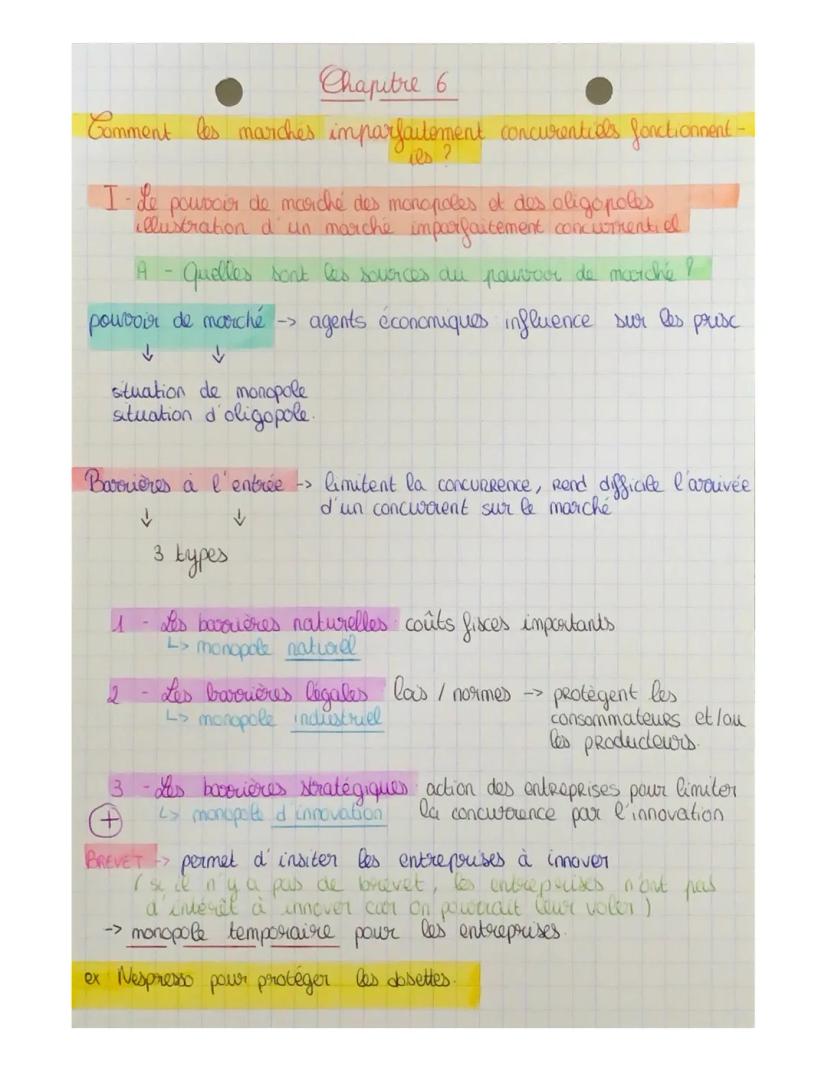 Chapitre 6
Comment les marchés imparfaitement concurentiels fonctionnent-
ils ?
I - Le pouvoir de marché des monopoles et des oligopoles
illustration d'un marché imparfaitement concurrentiel
A - Quelles sont les sources du pouvoir de marché ?
pouvoir de marché -> agents économiques influence sur les prisc
↓ ↓
situation de monopole
situation d'oligopole.
Barrières à l'entrée -> limitent la concurrence, rend difficile l'arrivée
d'un concurrent sur le marché
↓ ↓
3 types
1 - Les barrières naturelles coûts fisces importants
↳ monopole naturel
2 - Les barrières légales lois / normes -> protègent les
↳ monopole industriel consommateurs et/ou
les producteurs.
3 - Les barrières stratégiques action des entreprises pour limiter
+ ↳ monopole d'innovation la concurrence par l'innovation
BREVET -> permet d'insiter les entreprises à innover
( si il n'y a pas de brevet, les entreprises n'ont pas
d'intérêt à innover car on pourrait leur voler )
-> monopole temporaire pour les entreprises.
ex Nespresso pour protéger les dosettes.